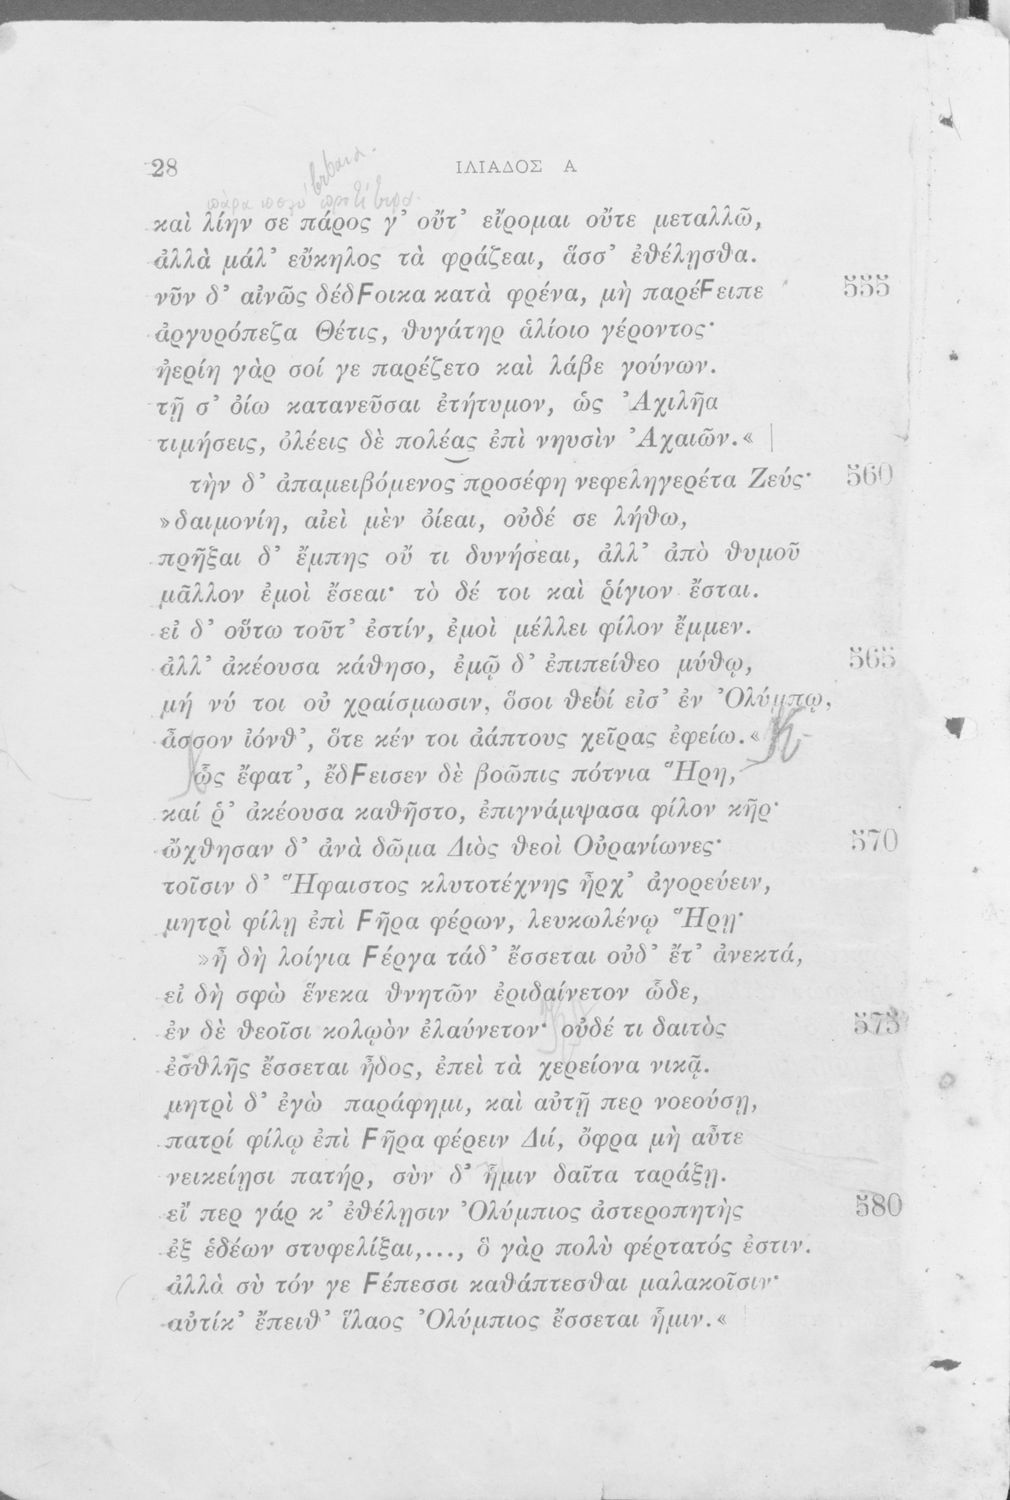 28 ΙΛΙΑΔΟΣ Α
καὶ λίην σε πάρος γ' οὔτ' εἴρομαι οὔτε μεταλλῶ,
ἀλλὰ μάλ' εὔκηλος τὰ φράζεαι, ἅσσ' ἐθέλησθα.
νῦν δ' αἰνῶς δέδϜοικα κατὰ φρένα, μὴ παρέϜειπε 555
ἀργυρόπεζα Θέτις, θυγάτηρ ἁλίοιο γέροντος·
ἠερίη γὰρ σοί γε παρέζετο καὶ λάβε γούνων.
τῇ σ' ὀίω κατανεῦσαι ἐτήτυμον, ὡς Ἀχιλῆα
τιμήσεις, ὀλέεις δὲ πολέας ἐπὶ νηυσὶν Ἀχαιῶν.«
τὴν δ' ἀπαμειβόμενος προσέφη νεφεληγερέτα Ζεύς· 560
»δαιμονίη, αἰεὶ μὲν ὀίεαι, οὐδέ σε λήθω,
πρῆξαι δ' ἔμπης οὔ τι δυνήσεαι, ἀλλ' ἀπὸ θυμοῦ
μᾶλλον ἐμοὶ ἔσεαι· τὸ δέ τοι καὶ ῥίγιον ἔσται.
εἰ δ' οὕτω τοῦτ' ἐστίν, ἐμοὶ μέλλει φίλον ἔμμεν.
ἀλλ' ἀκέουσα κάθησο, ἐμῷ δ' ἐπιπείθεο μύθῳ, 565
μή νύ τοι οὐ χραίσμωσιν, ὅσοι θεοί εἰσ' ἐν Ὀλύμπῳ,
ἆσσον ἰόνθ', ὅτε κέν τοι ἀάπτους χεῖρας ἐφείω.«
ὣς ἔφατ', ἔδϜεισεν δὲ βοῶπις πότνια Ἥρη,
καί ῥ' ἀκέουσα καθῆστο, ἐπιγνάμψασα φίλον κῆρ·
ὤχθησαν δ' ἀνὰ δῶμα Διὸς θεοὶ Οὐρανίωνες· 570
τοῖσιν δ' Ἥφαιστος κλυτοτέχνης ἦρχ' ἀγορεύειν,
μητρὶ φίλῃ ἐπὶ Ϝῆρα φέρων, λευκωλένῳ Ἥρῃ·
»ἦ δὴ λοίγια Ϝέργα τάδ' ἔσσεται οὐδ' ἔτ' ἀνεκτά,
εἰ δὴ σφὼ ἕνεκα θνητῶν ἐριδαίνετον ὧδε,
ἐν δὲ θεοῖσι κολῳὸν ἐλαύνετον· οὐδέ τι δαιτὸς 575
ἐσθλῆς ἔσσεται ἦδος, ἐπεὶ τὰ χερείονα νικᾷ.
μητρὶ δ' ἐγὼ παράφημι, καὶ αὐτῇ περ νοεούσῃ,
πατρί φίλῳ ἐπὶ Ϝῆρα φέρειν Διί, ὄφρα μὴ αὖτε
νεικείῃσι πατήρ, σὺν δ' ἧμιν δαῖτα ταράξῃ.
εἴ περ γάρ κ' ἐθέλῃσιν Ὀλύμπιος ἀστεροπητὴς 580
ἐξ ἑδέων στυφελίξαι,..., ὃ γὰρ πολὺ φέρτατός ἐστιν.
ἀλλὰ σὺ τόν γε Ϝέπεσσι καθάπτεσθαι μαλακοῖσιν·
αὐτίκ' ἔπειθ' ἵλαος Ὀλύμπιος ἔσσεται ἧμιν.«